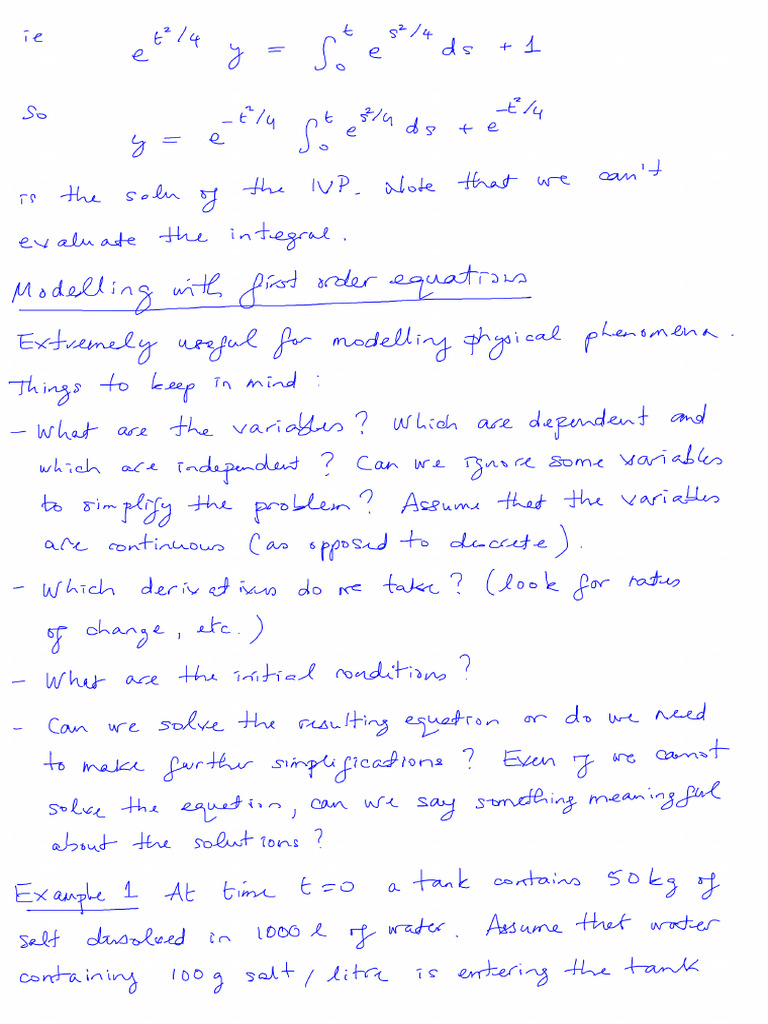 ie e^{t²/4} y = ∫₀ᵗ e^{s²/4} ds + 1
So y = e^{-t²/4} ∫₀ᵗ e^{s²/4} ds + e^{-t²/4}
is the soln of the IVP. Note that we can't
evaluate the integral.
Modelling with first order equations
Extremely useful for modelling physical phenomena.
Things to keep in mind :
- What are the variables ? Which are dependent and
which are independent ? Can we ignore some variables
to simplify the problem ? Assume that the variables
are continuous (as opposed to discrete).
- Which derivatives do we take ? (look for rates
of change, etc.)
- What are the initial conditions ?
- Can we solve the resulting equation or do we need
to make further simplifications ? Even if we cannot
solve the equation, can we say something meaningful
about the solutions ?
Example 1 At time t=0 a tank contains 50kg of
salt dissolved in 1000 l of water. Assume that water
containing 100g salt / litre is entering the tank